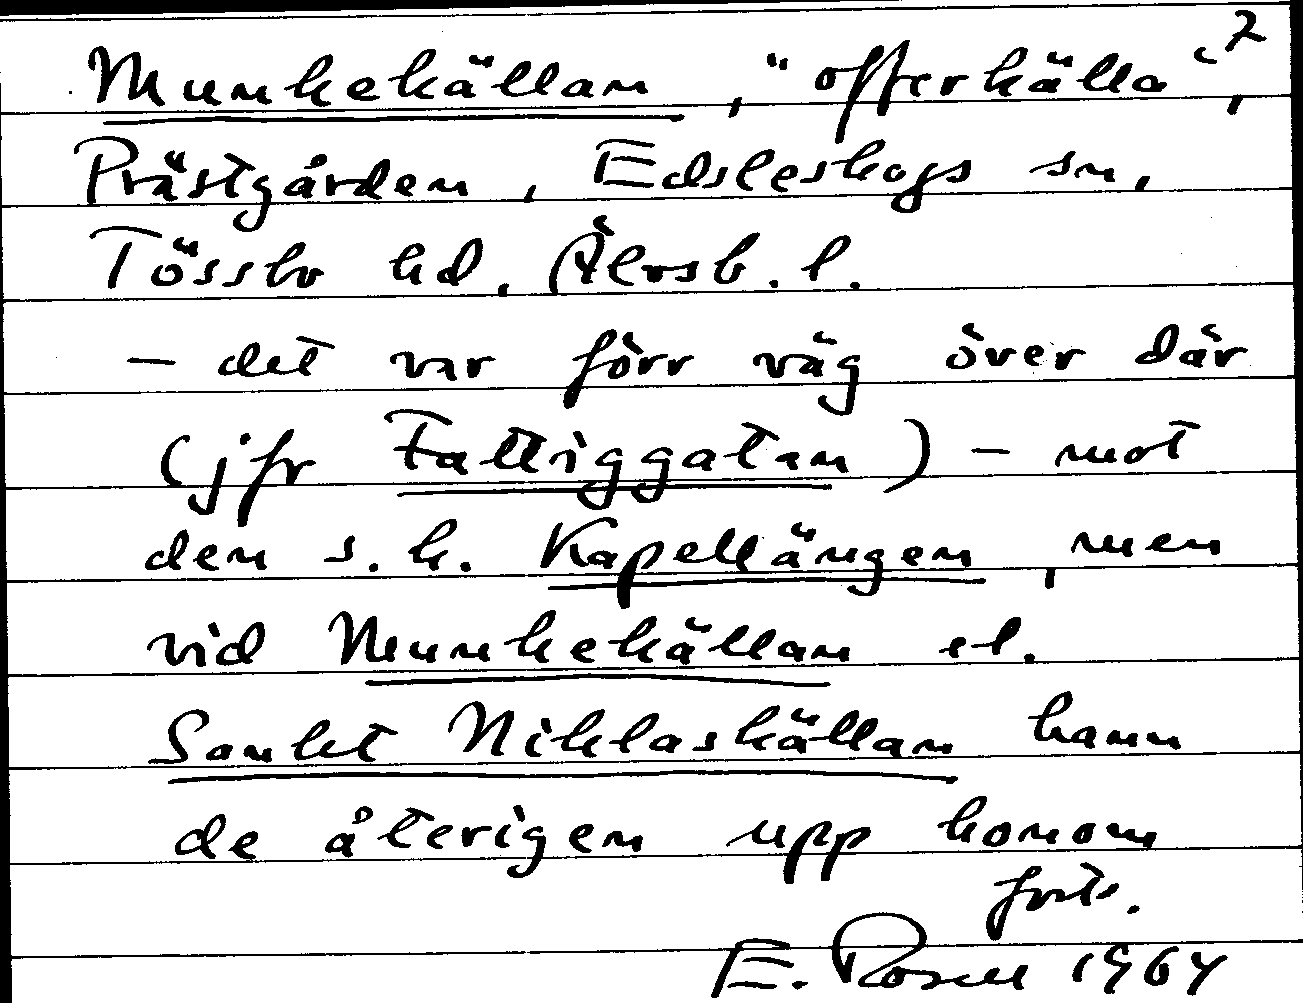 Munkekällan, "offerkälla", 2
Prästgården, Edsleskogs sn,
Tössbo hd, Älvsb. l.
– det var förr väg över där
(jfr Fattiggatan) – mot
den s.k. Kapellängen, men
vid Munkekällan el.
Sankt Niklaskällan hann
de återigen upp honom
forts.
E. Rosell 1964